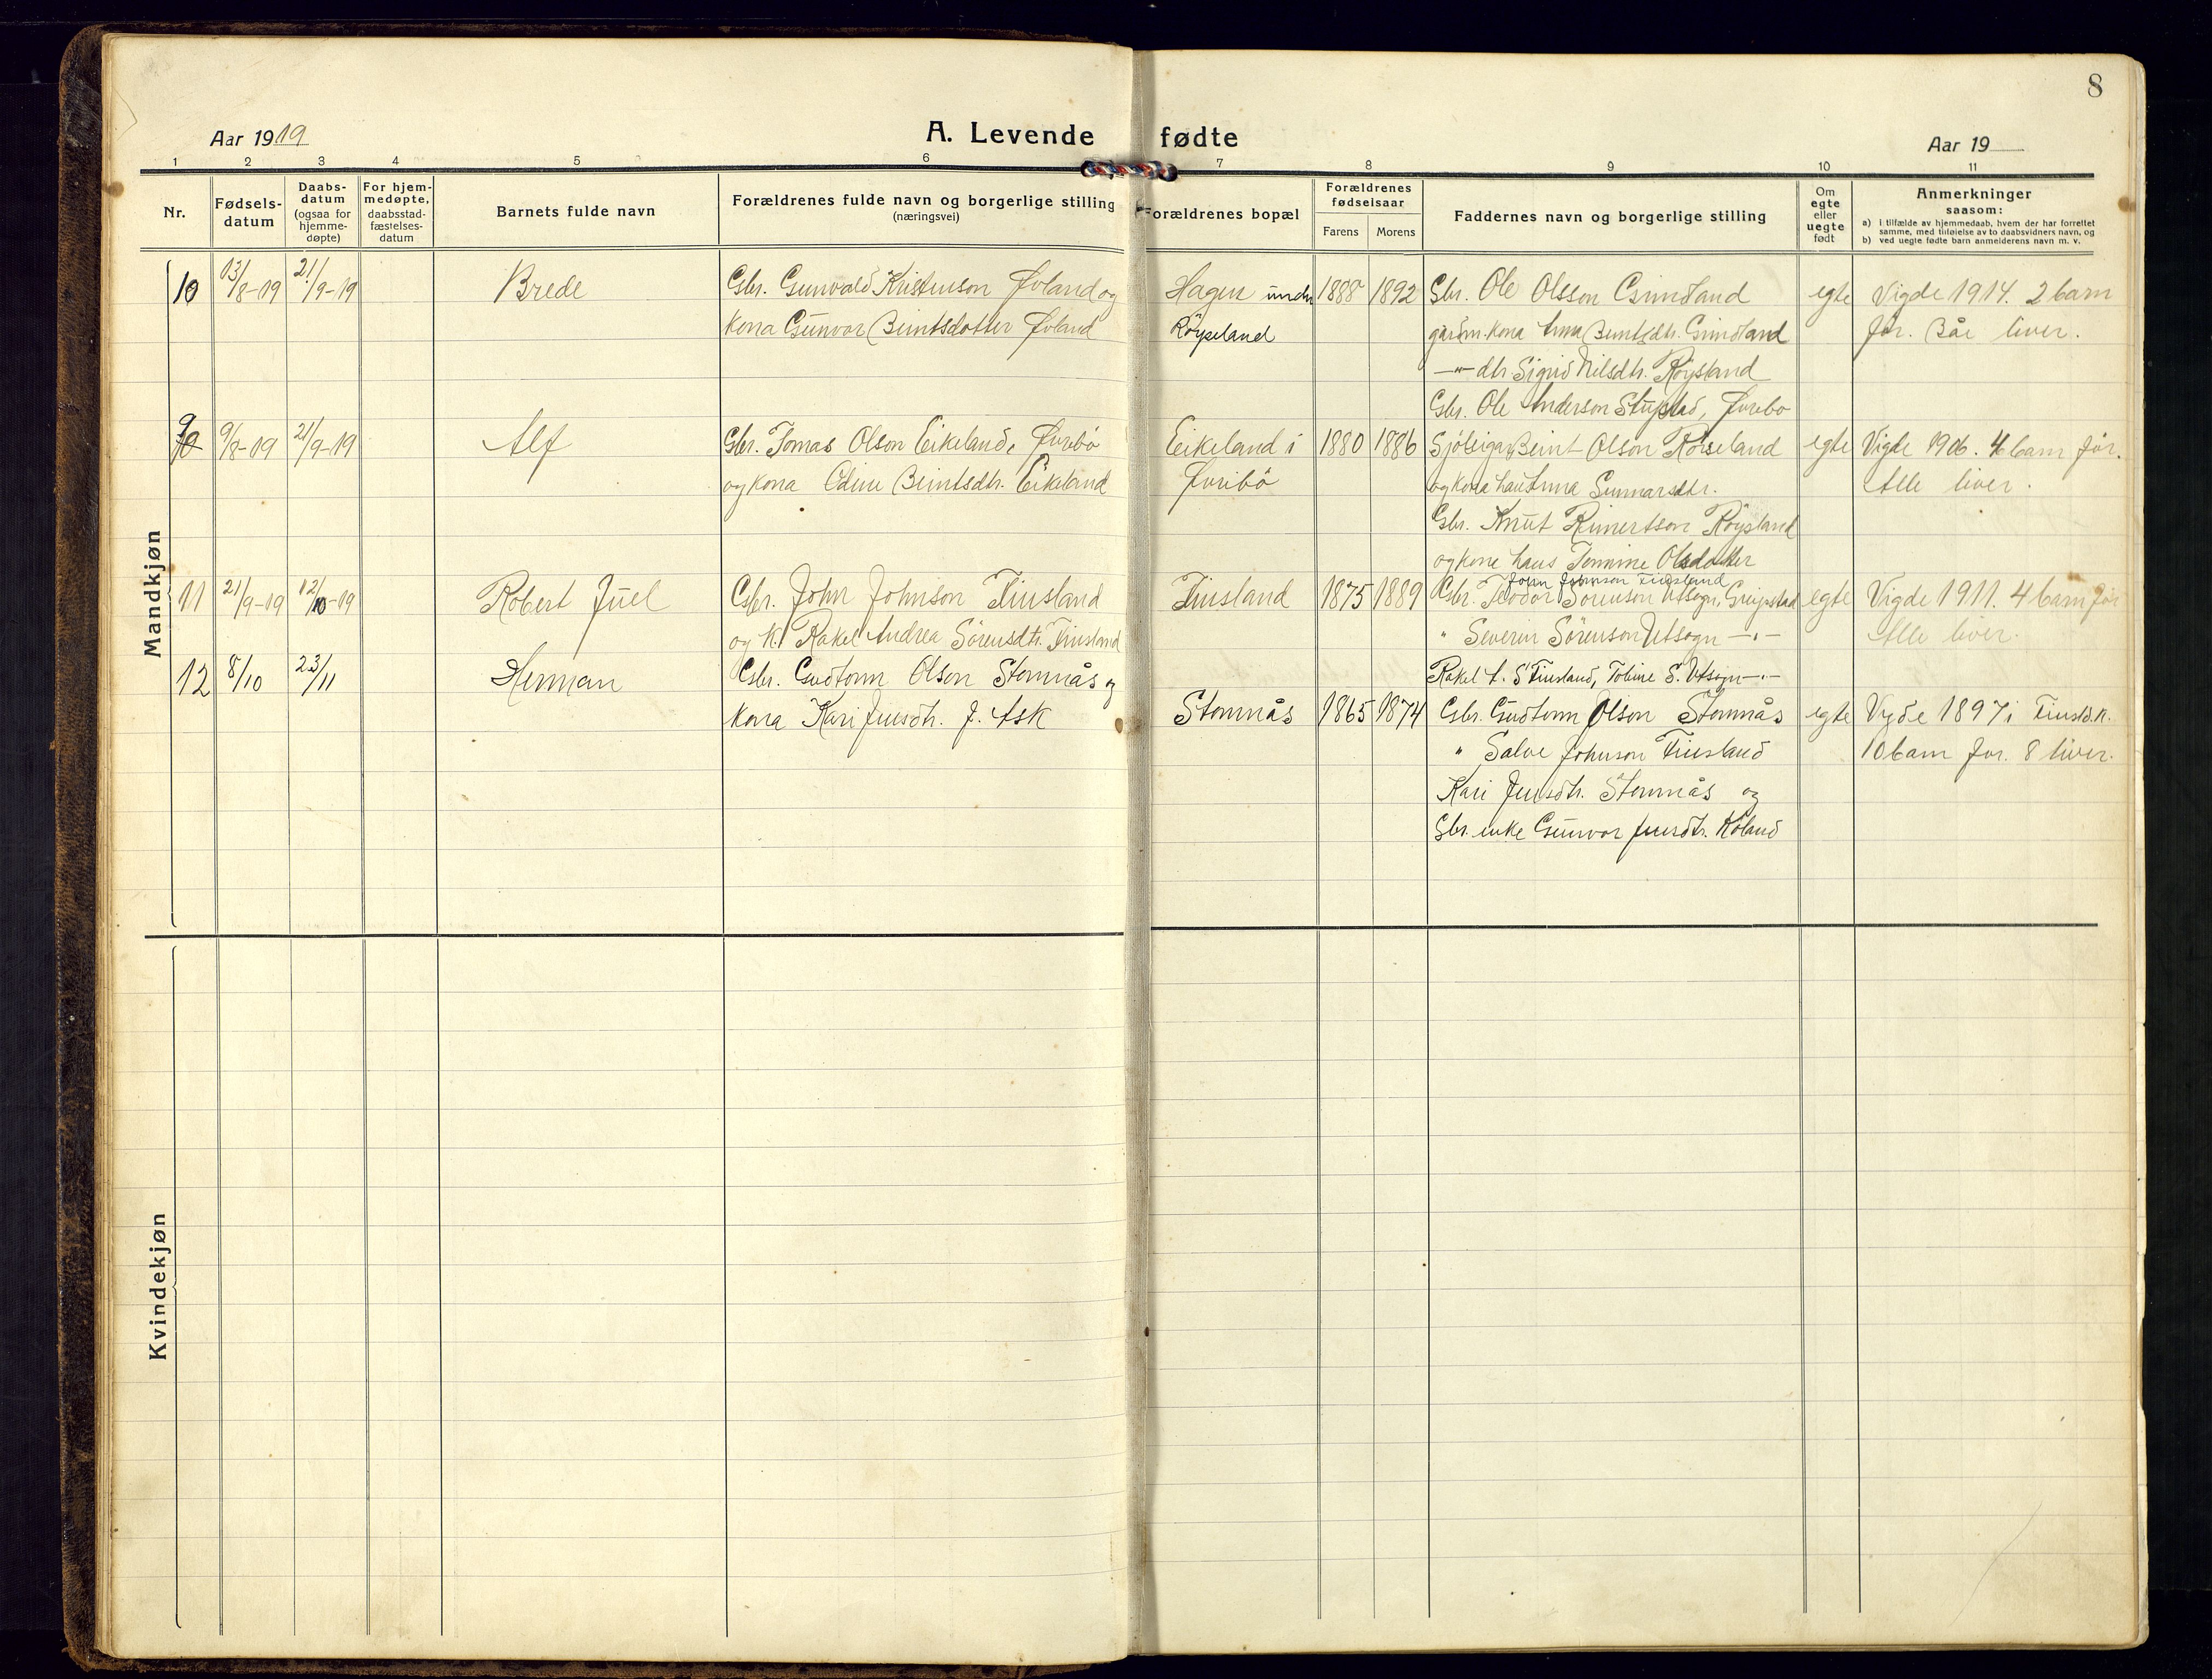 8
Aar 1919
A. Levende fødte
Aar 19
1 2 3 4 5 6 7 8 9 10 11
Nr.
Fødsels-
datum
Daabs-
datum
(ogsaa for
hjemme-
døpte)
For hjem-
medøpte,
daabsstad-
fæstelses-
datum
Barnets fulde navn
Forældrenes fulde navn og borgerlige stilling
(næringsvei)
Forældrenes bopæl
Forældrenes
fødselsaar
Farens Morens
Faddernes navn og borgerlige stilling
Om
egte
eller
uegte
født
Anmerkninger
saasom:
a) i tilfælde av hjemmedaab, hvem der har forrettet
samme, med tilføielse av to daabsvidners navn, og
b) ved uegte fødte barn anmelderens navn m. v.
Mandkjøn
10 13/8-19 21/9-19 Brede
Gbr. Gunvald Kristenson Øvland og
kona Gunvor Beintsdotter Øvland
Hagen under
Röyseland
1888 1892
Gbr. Ole Olsson Grindland
gardm. kona Anna Beintsdtr. Grindland
—"— dtr. Sigrid Nilsdtr. Röysland
Gbr. Ole Anderson Stupstad, Øvrebo
egte
Vigde 1914. 2 barn
før. Båe liver.
9 9/8-19 21/9-19 Alf
Gbr. Tomas Olson Eikeland, Øvrebö
og kona Odine Beintsdtr. Eikeland
Eikeland i
Øvrebö
1880 1886
Beint Olson Röiseland
og kona Anna Gunnarsdtr.
Gbr. Knut Reinertson Röysland
og kone hans Tomine Olsdotter
egte
Vigde 1906. 4 barn før.
Alle liver.
11 21/9-19 12/10-19 Robert Juel
Gbr. John Johnson Finsland
og K. Rakel Andrea Sörensdtr. Finsland
Finsland
1875 1889
John Johnson Finsland
Gbr. Teodor Sörenson Utsogn, Greipstad
" Severin Sörenson Utsogn —"—
Rakel A. S Finsland, Tobine S. Utsogn —"—
egte
Vigde 1911. 4 barn før
Alle liver.
12 8/10 23/11 Herman
Gbr. Gudtorm Olson Stomnås og
kona Kari Jensdtr. J. Ask
Stomnås
1865 1874
Gbr. Gudtorm Olson Stomnås
" Salve Johnson Finsland
Kari Jensdtr. Stomnås og
Gbr. enke Gunvor Jensdtr. Köland
egte
Vigde 1897 i Finsld. K.
10 barn før. 8 liver.
Kvindekjøn